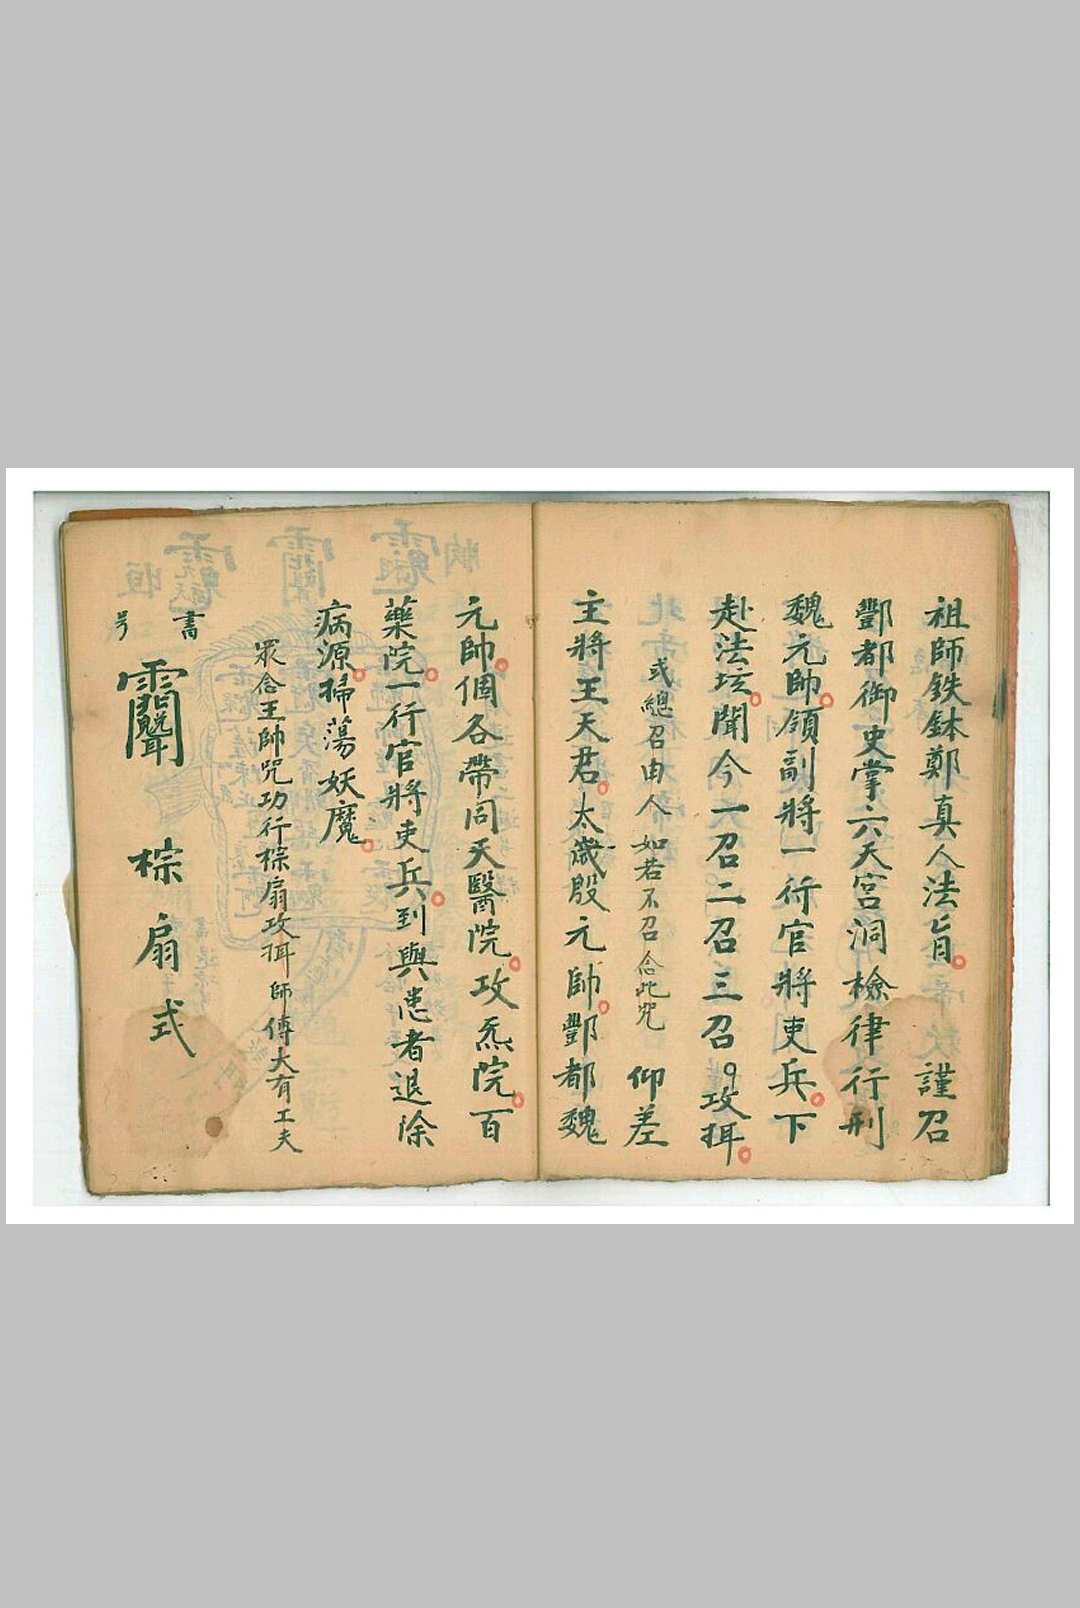 祖師鉄鉢鄭真人法旨。謹召
酆都御史掌六天宮洞檢律行刑
魏元帥。領副將一行官將吏兵。下
赴法坛。聞今一召二召三召攻揖。
或總召由人如若不召念此咒 仰差
主將王天君。太歲殷元帥。酆都魏
元帥。個各帶同天醫院。攻炁院。百
藥院。一行官將吏兵。到與患者退除
病源。掃蕩妖魔。
眾念王帥咒功行棕扇攻揖師傅大有工夫
書
号
棕扇式